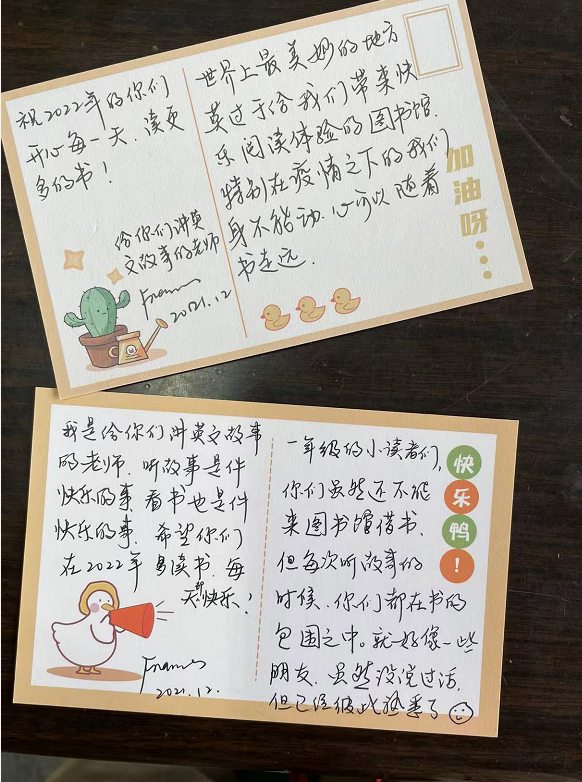 祝2022年的你们
开心每一天，读更
多的书！
给你们讲英
文故事的老师
2021.12
世界上最美妙的地方
莫过于给我们带来快
乐阅读体验的图书馆.
特别在疫情之下的我们
身不能动.心可以随着
书走远.
加油呀...
我是给你们讲英文故事
的老师.听故事是件
快乐的事.看书也是件
快乐的事.希望你们
在2022年多读书.每
天都快乐！
2021.12.
一年级的小读者们,
你们虽然还不能
来图书馆借书.
但每次听故事的
时候.你们都在书的
包围之中。就好像一些
朋友.虽然没说过话.
但已经彼此熟悉了
快乐鸭!